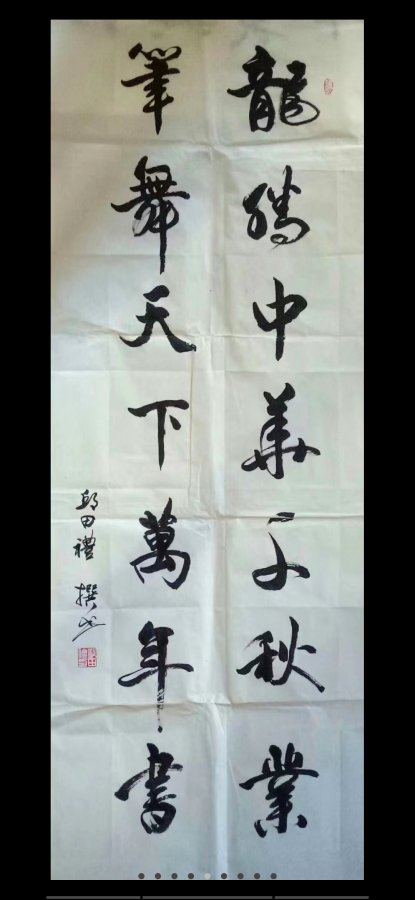 龍騰中華千秋業
筆舞天下萬年書
田禮 撰